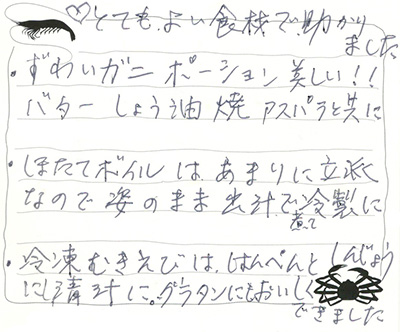 ♡とてもよい食材で助かり
ました
・ずわいガニ ポーション 美しい!!
バター しょう油 焼 アスパラと共に
・ほたてボイル は、あまりに立派
なので 姿のまま 出汁で煮て冷製に
・冷凍むきえびは、はんぺんと しんじょう
に!清汁に。グラタンにもおいしく
できました